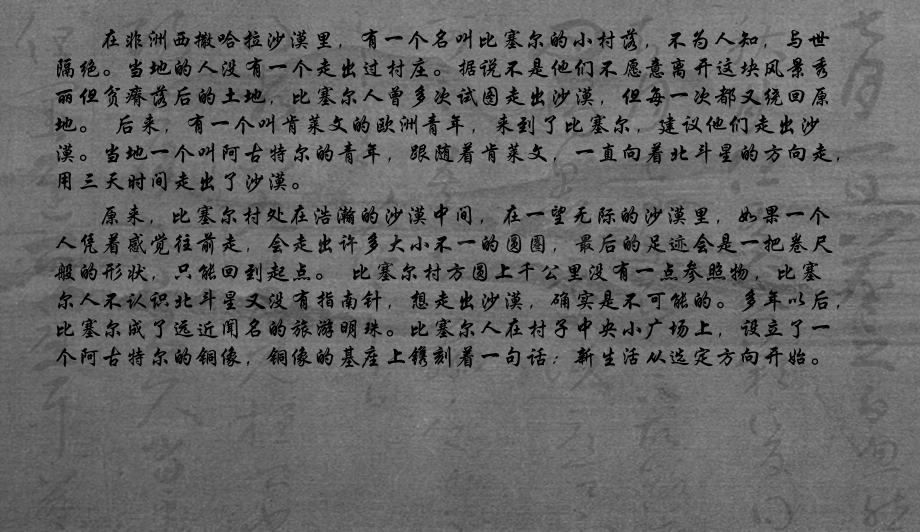 在非洲西撒哈拉沙漠里，有一个名叫比塞尔的小村落，不为人知，与世
隔绝。当地的人没有一个走出过村庄。据说不是他们不愿意离开这块风景秀
丽但贫瘠落后的土地，比塞尔人曾多次试图走出沙漠，但每一次都又绕回原
地。 后来，有一个叫肯莱文的欧洲青年，来到了比塞尔，建议他们走出沙
漠。当地一个叫阿古特尔的青年，跟随着肯莱文，一直向着北斗星的方向走，
用三天时间走出了沙漠。
原来，比塞尔村处在浩瀚的沙漠中间，在一望无际的沙漠里，如果一个
人凭着感觉往前走，会走出许多大小不一的圆圈，最后的足迹会是一把卷尺
般的形状，只能回到起点。 比塞尔村方圆上千公里没有一点参照物，比塞
尔人不认识北斗星又没有指南针，想走出沙漠，确实是不可能的。多年以后，
比塞尔成了远近闻名的旅游明珠。比塞尔人在村子中央小广场上，设立了一
个阿古特尔的铜像，铜像的基座上镌刻着一句话：新生活从选定方向开始。